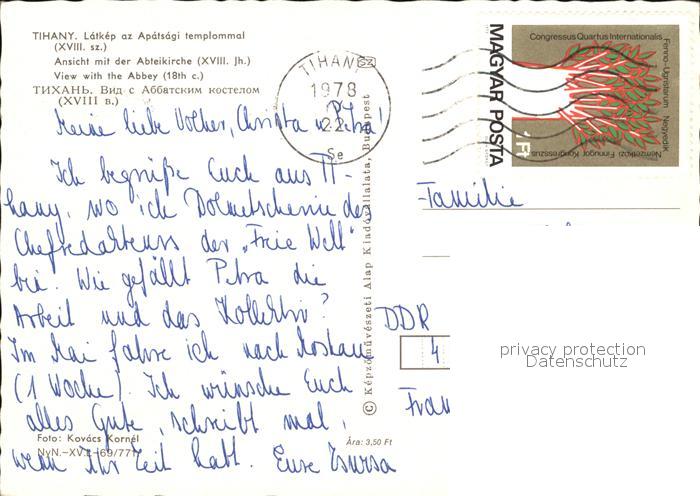 TIHANY. Látkép az Apátsági templommal
(XVIII. sz.)
Ansicht mit der Abteikirche (XVIII. Jh.)
View with the Abbey (18th c.)
ТИХАНЬ. Вид с Аббатским костелом
(XVIII в.)
TIHANY
1978
22
Se
MAGYAR POSTA
1Ft
Congressus Quartus Internationalis
Fenno-Ugristarum Negyedik
Nemzetközi Finnugor Kongresszus
Meine liebe Volker, Christa u. Petra!
Ich begrüße Euch aus Ti-
hany, wo ich Dolmetscherin des
Chefredakteurs der „Freie Welt"
bin. Wie gefällt Petra die
Arbeit und das Kollektiv?
Im Mai fahre ich nach Moskau
(1 Woche). Ich wünsche Euch
alles Gute, schreibt mal,
wenn Ihr Zeit habt. Eure Zsuzsa
Foto: Kovács Kornél
NyN.-XV.
69/771
Ára: 3,50 Ft
© Képzőművészeti Alap Kiadóvállalata, Budapest
Familie
DDR
4
Fran
privacy protection
Datenschutz